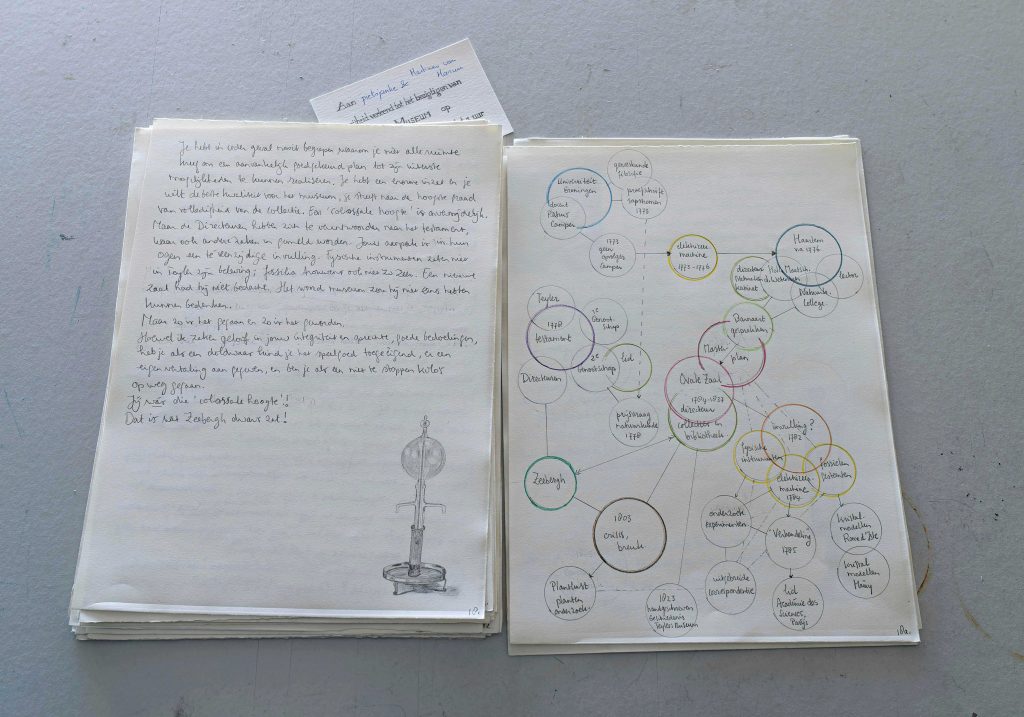 Aan pietjanke de
Martinus van
Marum
MUSEUM OP
Je hebt in ieder geval nooit begrepen waarom je niet alle ruimte
kreeg om een aanvankelijk goedgekeurd plan tot zijn uiterste
mogelijkheden te kunnen realiseren. Je hebt een enorme inzet en je
wilt de beste kwaliteit voor het museum, je streeft naar de hoogste graad
van volledigheid van de collectie. Een 'colossale hoogte' is onvermijdelijk.
Maar de Directeuren hebben zich te verantwoorden naar het testament,
waar ook andere zaken in gemeld worden. Jouw aanpak is in hun
ogen een te eenzijdige invulling. Fysische instrumenten zaten niet
in Teylers zijn belang, fossiele trouwens ook niet zo zeer. Een nieuwe
zaal had hij niet bedacht. Het woord museum zou hij niet eens hebben
kunnen bedenken.
Maar zo is het gegaan en zo is het geworden.
Hoewel ze zeker geloof in jouw integriteit en oprechte, goede bedoelingen,
heb je als een dwars kind je het speelgoed toegeëigend, er een
eigen vertaling aan gegeven, en ben je als een niet te stoppen kolos
op weg gegaan.
Jij was die 'colossale hoogte'!
Dat is wat Zeebergh dwars zat!
18.
Universiteit
Groningen
geneeskunde
filosofie
proefschrift
sapstromen
1773
docent
Petrus
Camper
1773
geen
opvolger
Camper
elektriseer
machine
1773-1776
Haarlem
na 1776
directeur
kabinet
Holl. Maatsch.
Wetensch.
lector
Natuurk.
College
Teyler
1778
testament
Directeuren
1e
Genootschap
2e
Genootschap
lid
prijsvraag
natuurkunde
1778
Barnaart
gesprekken
Masterplan
Ovale Zaal
1784-1837
directeur
collecties en
bibliotheek
invulling?
1782
fysische
instrumenten
elektriseer-
machine
1784
fossielen
gesteenten
Zeebergh
1803
crisis,
breuk.
onderzoek
experimenten
Verhandeling
1785
kristal
modellen
Romé d'Isle
kristal
modellen
Haüy
Plantlust
planten
onderzoek
1823
handgeschreven
geschiedenis
Teylers Museum
uitgebreide
correspondentie
lid
Académie des
Sciences,
Parijs
18a.